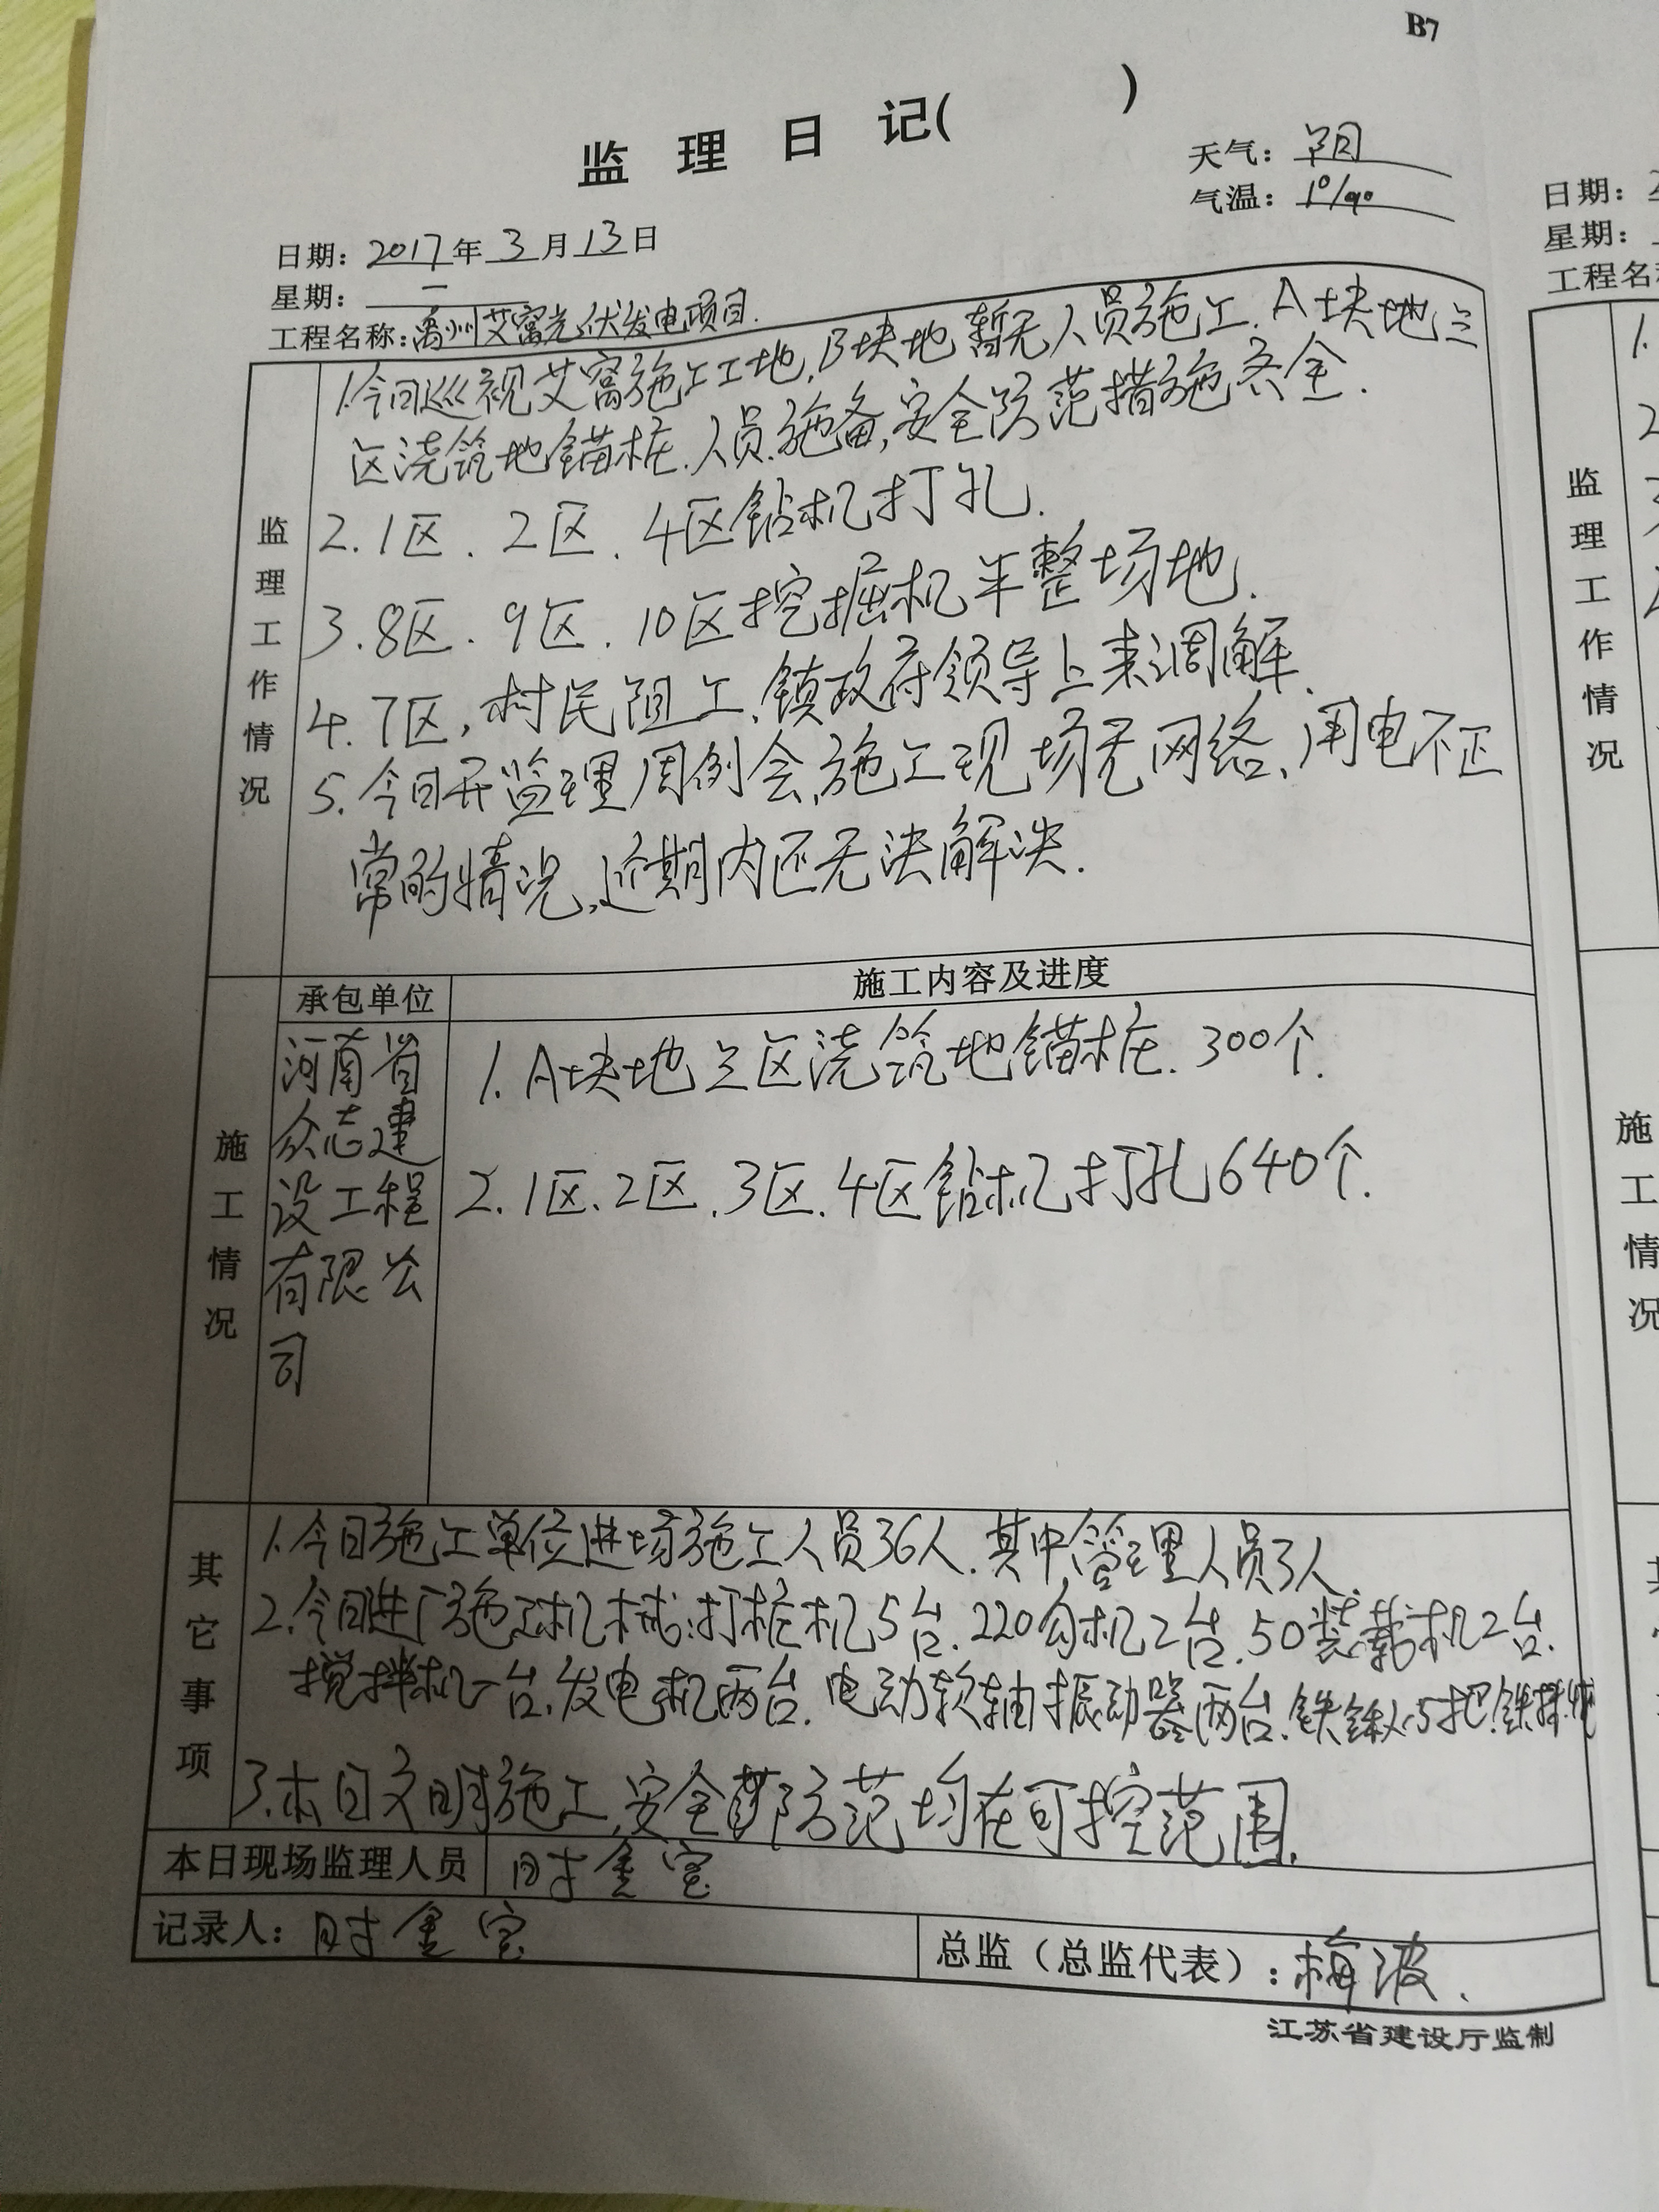 B7
监 理 日 记( )
天气: 阴
气温: 1°/9°
日期: 2017年3月13日
星期: 一
工程名称:禹州艾窝光伏发电项目.
监理工作情况
1.今日巡视艾窝施工工地,B块地暂无人员施工.A块地三
区浇筑地锚桩.人员.施备,安全防范措施齐全.
2.1区.2区.4区钻机打孔.
3.8区.9区.10区挖掘机平整场地.
4.7区,村民阻工,镇政府领导上来调解.
5.今日开监理周例会,施工现场无网络、用电不正
常的情况,近期内还无法解决.
施工情况
承包单位
施工内容及进度
河南省
众志建
设工程
有限公
司
1.A块地三区浇筑地锚桩.300个.
2.1区.2区.3区.4区钻机打孔640个.
其它事项
1.今日施工单位进场施工人员36人.其中管理人员3人.
2.今日进厂施工机械:打桩机5台.220勾机2台.50装载机2台.
搅拌机一台.发电机两台.电动软轴振动器两台.铁锹5把.
3.本日文明施工,安全防范均在可控范围.
本日现场监理人员 时金宝
记录人: 时金宝
总监(总监代表): 梅波.
江苏省建设厅监制
日期: 2
星期:
工程名称
监理工作情况
1.
2
施工情况